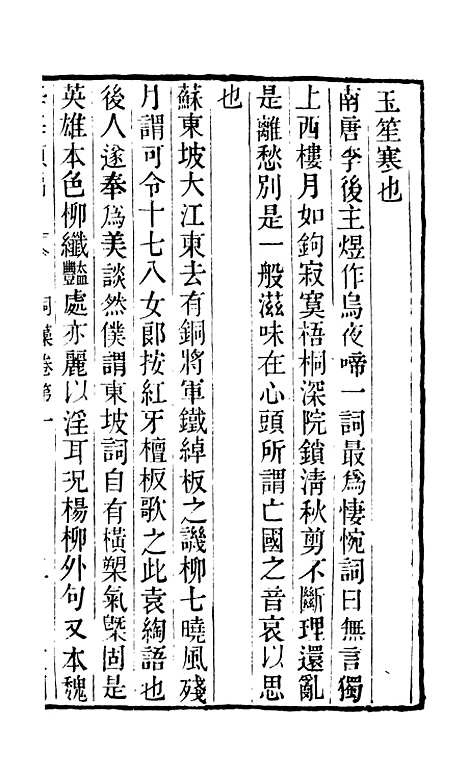 玉笙寒也
南唐李後主煜作烏夜啼一詞最爲悽惋詞曰無言獨
上西樓月如鉤寂寞梧桐深院鎖淸秋剪不斷理還亂
是離愁別是一般滋味在心頭所謂亡國之音哀以思
也
蘇東坡大江東去有銅將軍鐵綽板之譏柳七曉風殘
月謂可令十七八女郞按紅牙檀板歌之此袁綯語也
後人遂奉爲美談然僕謂東坡詞自有橫槊氣槩固是
英雄本色柳纖豔處亦麗以淫耳況楊柳外句又本魏
詞藻卷第一